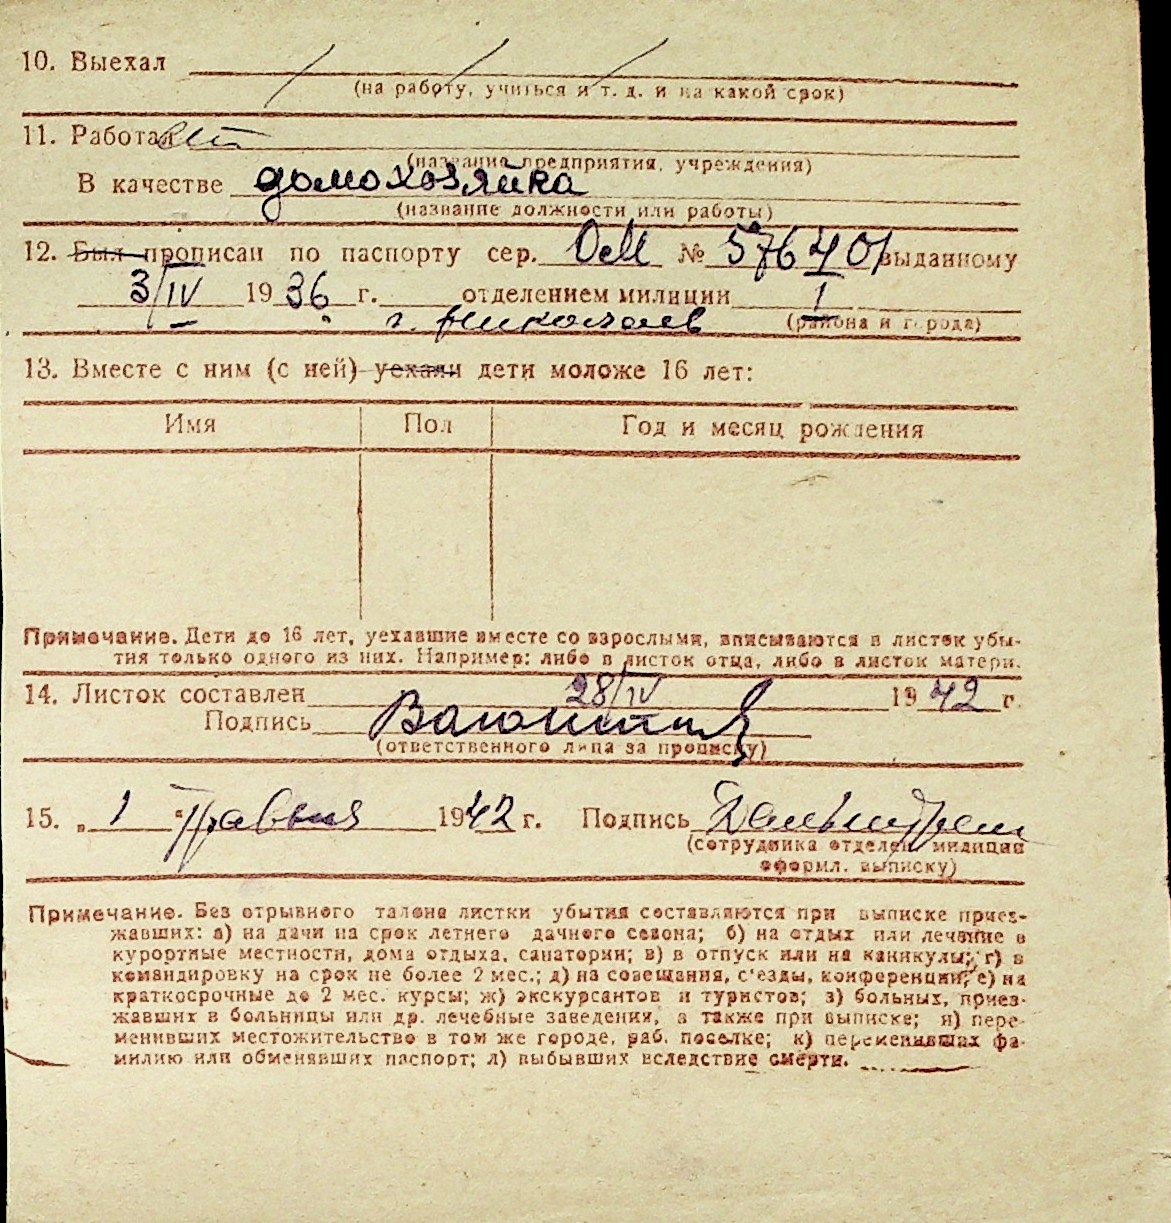 10. Выехал
(на работу, учиться и т. д. и на какой срок)
11. Работал
(название предприятия, учреждения)
В качестве домохозяйка
(название должности или работы)
12. Был прописан по паспорту сер. № 576401 выданному
3/IV 1936 г. отделением милиции 1
г. Николаев (района и города)
13. Вместе с ним (с ней) уехали дети моложе 16 лет:
Имя Пол Год и месяц рождения
Примечание. Дети до 16 лет, уехавшие вместе со взрослыми, вписываются в листок убы-
тия только одного из них. Например: либо в листок отца, либо в листок матери.
14. Листок составлен 28/IV 1942 г.
Подпись
(ответственного лица за прописку)
15. „1" Травня 1942 г. Подпись
(сотрудника отделен. милиции
оформл. выписку)
Примечание. Без отрывного талона листки убытия составляются при выписке приез-
жавших: а) на дачи на срок летнего дачного сезона; б) на отдых или лечение в
курортные местности, дома отдыха, санатории; в) в отпуск или на каникулы; г) в
командировку на срок не более 2 мес.; д) на совещания, с'езды, конференции; е) на
краткосрочные до 2 мес. курсы; ж) экскурсантов и туристов; з) больных, приез-
жавших в больницы или др. лечебные заведения, а также при выписке; и) пере-
менивших местожительство в том же городе, раб. поселке; к) переменивших фа-
милию или обменявших паспорт; л) выбывших вследствие смерти.